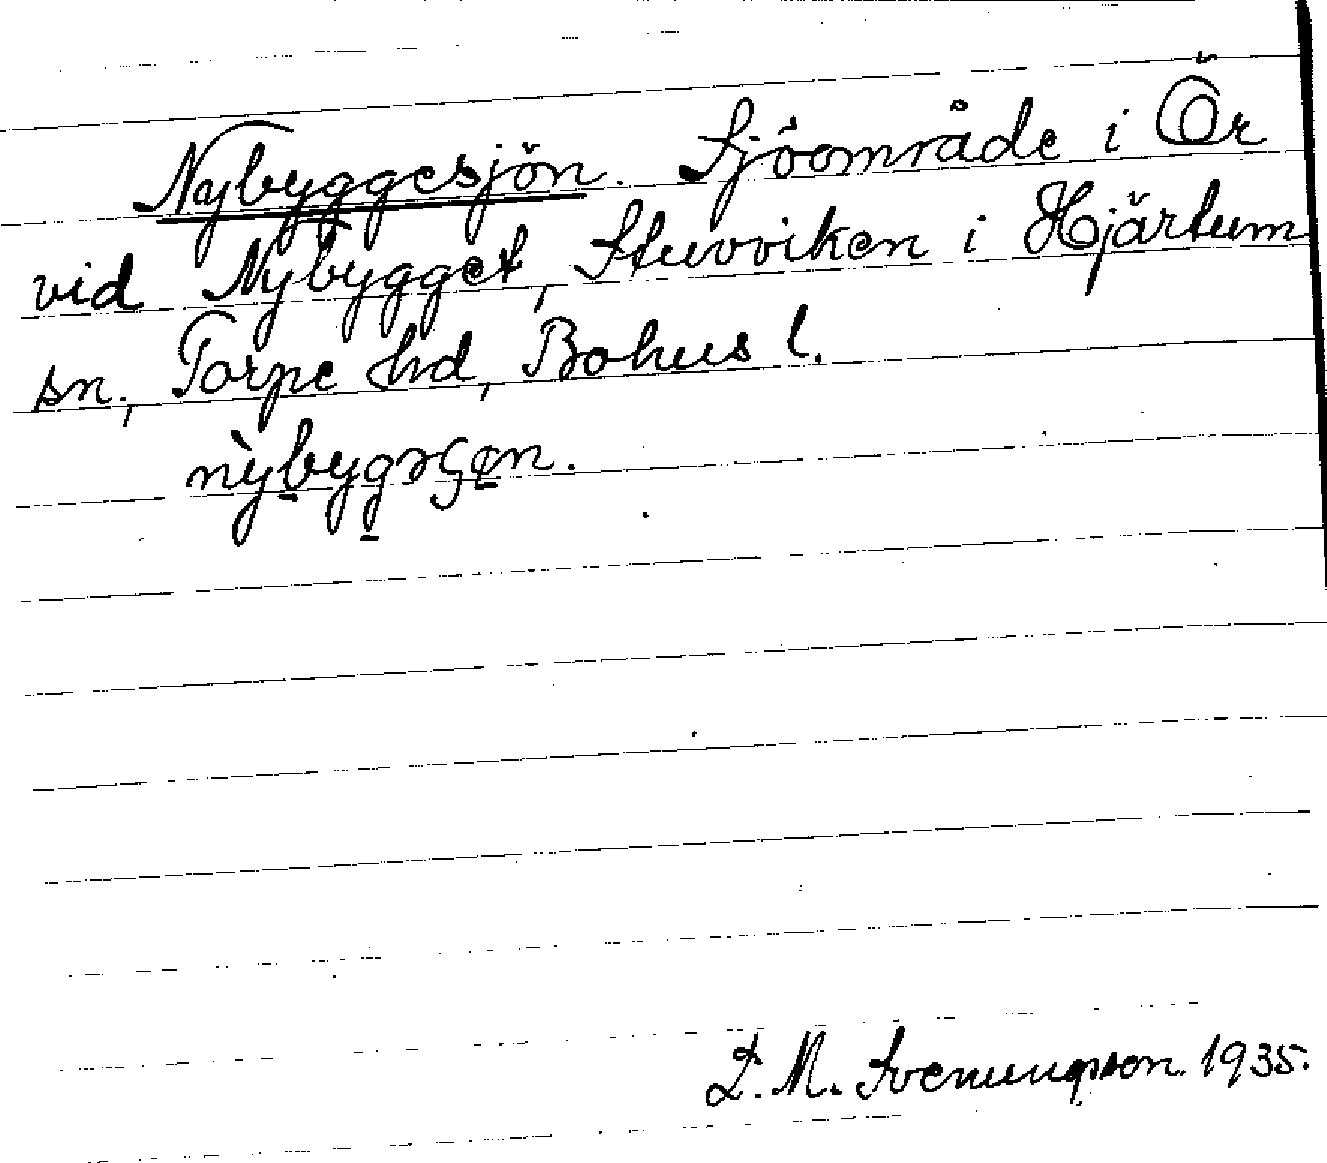 Nybyggesjön. Sjöområde i Ör
vid Nybygget, Stuvviken i Hjärtum
sn, Torpe hd, Bohus l.
L. M. Svenungsson 1935.